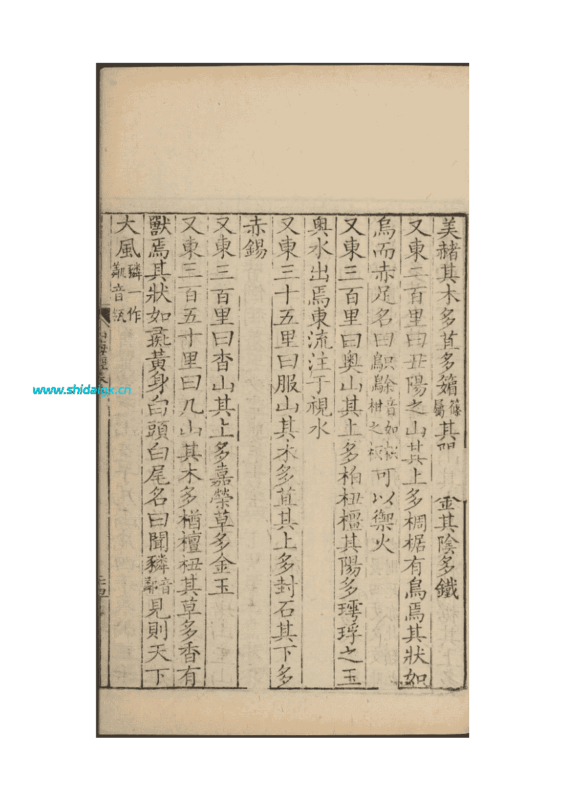 美赭其木多苴多䉋其陽 金其陰多鐵
又東三百里曰丑陽之山其上多椆椐有鳥焉其狀如
烏而赤足名曰䳅鵌音如枳柑之枳可以禦火
又東三百里曰奧山其上多柏杻檀其陽多㻬琈之玉
奧水出焉東流注于視水
又東三十五里曰服山其木多苴其上多封石其下多
赤錫
又東三百里曰杳山其上多嘉榮草多金玉
又東三百五十里曰几山其木多楢檀杻其草多香有
獸焉其狀如彘黃身白頭白尾名曰聞獜音鄰見則天下
大風獜一作
www.shidaigx.cn